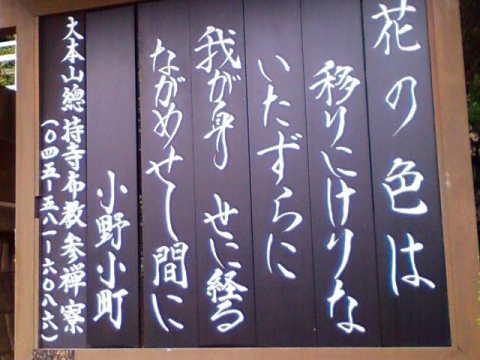 花の色は
移りにけりな
いたずらに
我が身 せに経る
ながめせし間に
小野小町
大本山總持寺布教参禅寮
(〇四五-五八一-六〇八六)